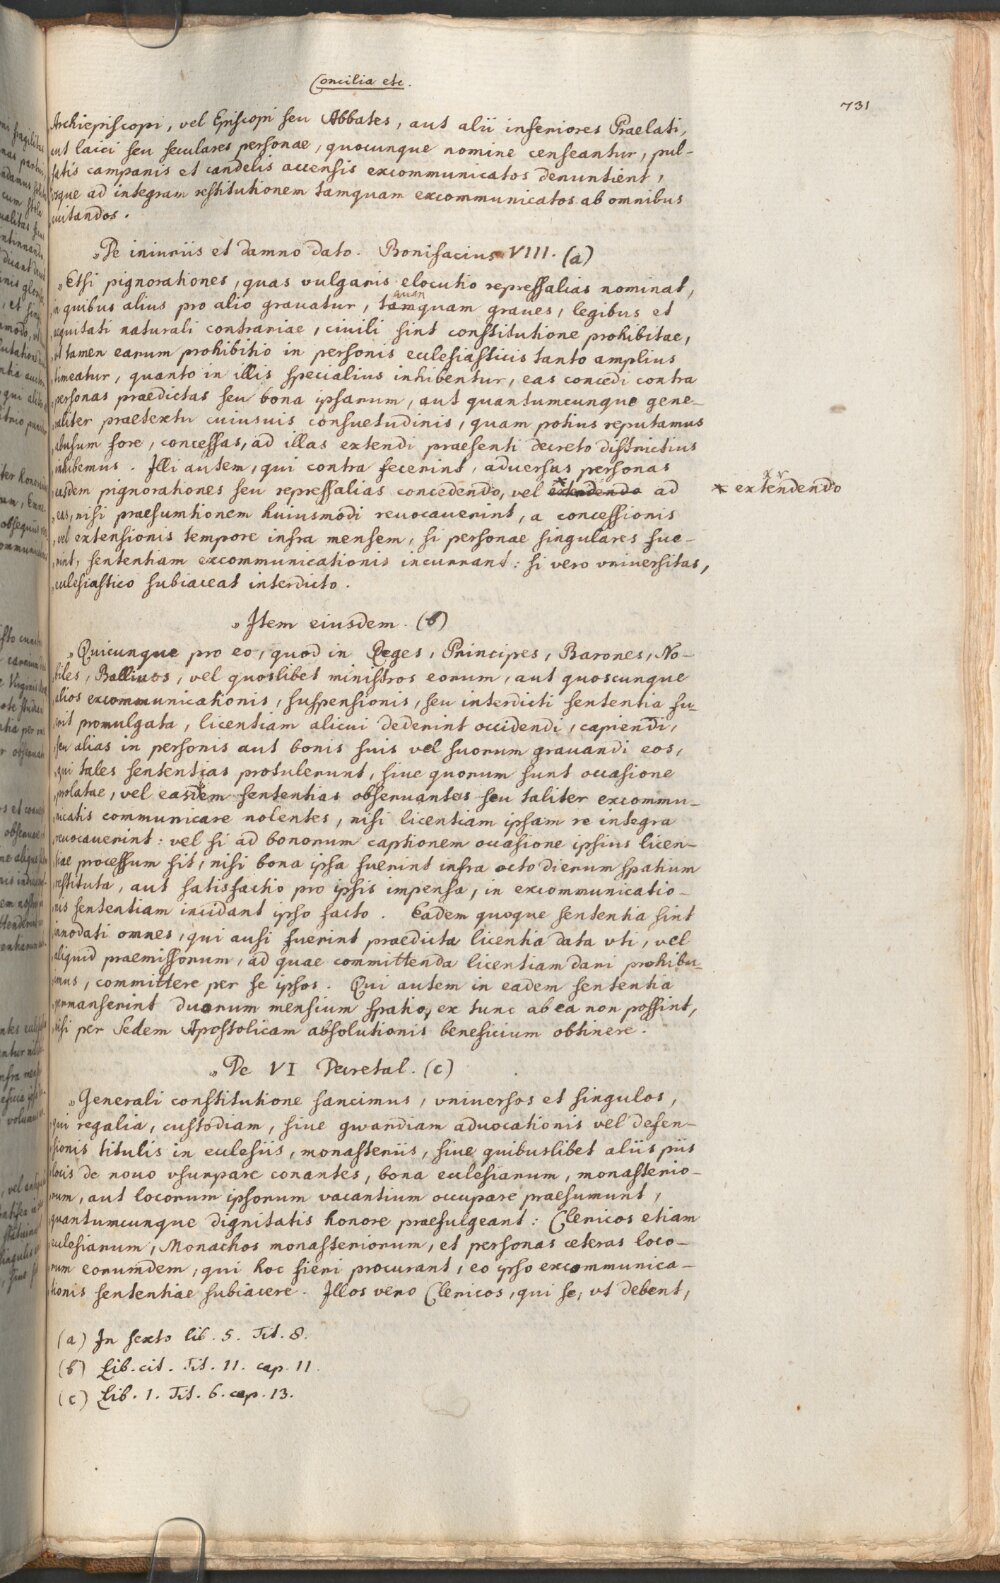 Concilia etc.
731
Archiepiscopi, vel Episcopi seu Abbates, aut alii inferiores Praelati,
aut laici seu seculares personae, quocunque nomine censeantur, pul-
satis campanis et candelis accensis excommunicatos denuntient,
usque ad integram restitutionem tamquam excommunicatos ab omnibus
euitandos.
„De iniuriis et damno dato. Bonifacius VIII. (a)
„Etsi pignorationes, quas vulgaris elocutio repressalias nominat,
in quibus alius pro alio grauatur, tamquam graues, legibus et
aequitati naturali contrariae, ciuili sint constitutione prohibitae,
ut tamen earum prohibitio in personis ecclesiasticis tanto amplius
timeatur, quanto in illis specialius inhibentur, eas concedi contra
personas praedictas seu bona ipsarum, aut quantumcunque gene-
raliter praetextu cuiusuis consuetudinis, quam potius reputamus
abusum fore, concessas, ad illas extendi praesenti decreto districtius
inhibemus. Illi autem, qui contra fecerint, aduersus personas
easdem pignorationes seu repressalias concedendo, vel extendendo ad
* extendendo
eas, nisi praesumtionem huiusmodi reuocauerint, a concessionis
vel extensionis tempore infra mensem, si personae singulares fue-
rint, sententiam excommunicationis incurrant: si vero vniuersitas,
ecclesiastico subiaceat interdicto.
„Item eiusdem. (b)
„Quicunque pro eo, quod in Reges, Principes, Barones, No-
biles, Balliuos, vel quoslibet ministros eorum, aut quoscunque
alios excommunicationis, suspensionis, seu interdicti sententia fu-
erit promulgata, licentiam alicui dederint occidendi, capiendi,
seu alias in personis aut bonis suis vel suorum grauandi eos,
qui tales sententias protulerunt, siue quorum sunt occasione
prolatae, vel easdem sententias obseruantes seu taliter excommu-
nicatis communicare nolentes, nisi licentiam ipsam re integra
reuocauerint: vel si ad bonorum captionem occasione ipsius licen-
tiae processum sit, nisi bona ipsa fuerint infra octo dierum spatium
restituta, aut satisfactio pro ipsis impensa, in excommunicatio-
nis sententiam incidant ipso facto. Eadem quoque sententia sint
innodati omnes, qui ausi fuerint praedicta licentia data vti, vel
aliquid praemissorum, ad quae committenda licentiam dari prohibu-
imus, committere per se ipsos. Qui autem in eadem sententia
permanserint duorum mensium spatio, ex tunc ab ea non possint,
nisi per Sedem Apostolicam absolutionis beneficium obtinere.
„De VI Decretal. (c)
„Generali constitutione sancimus, vniuersos et singulos,
qui regalia, custodiam, siue gwardiam aduocationis vel defen-
sionis titulis in ecclesiis, monasteriis, siue quibuslibet aliis piis
locis de nouo vsurpare conantes, bona ecclesiarum, monasterio-
rum, aut locorum ipsorum vacantium occupare praesumunt,
quantumcunque dignitatis honore praefulgeant: Clericos etiam
ecclesiarum, Monachos monasteriorum, et personas ceteras loco-
rum eorumdem, qui hoc fieri procurant, eo ipso excommunica-
tionis sententiae subiacere. Illos vero Clericos, qui se, vt debent,
(a) In sexto lib. 5. Tit. 8.
(b) Lib. cit. Tit. 11. cap. 11.
(c) Lib. 1. Tit. 6. cap. 13.